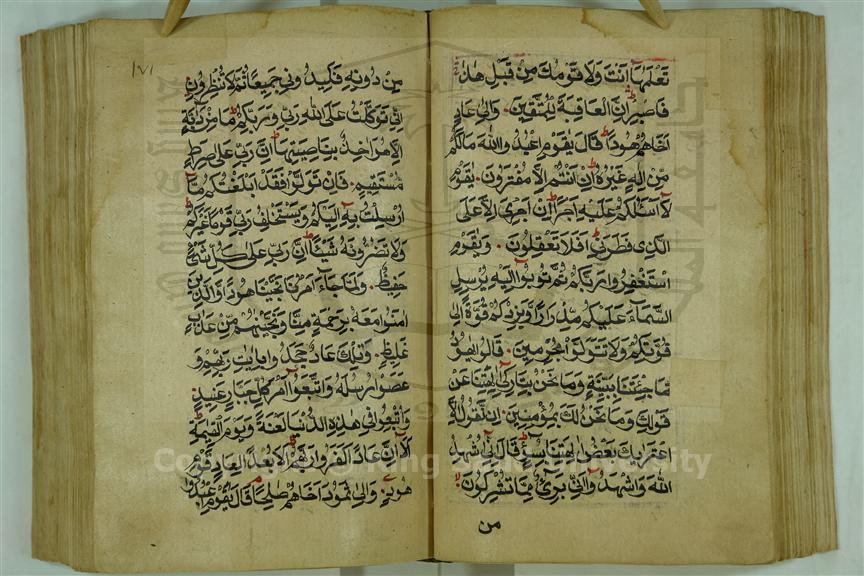 تَعْلَمُهَا أَنْتَ وَلَا قَوْمُكَ مِنْ قَبْلِ هٰذَا
فَاصْبِرْ إِنَّ الْعَاقِبَةَ لِلْمُتَّقِينَ وَإِلَىٰ عَادٍ
أَخَاهُمْ هُودًا قَالَ يٰقَوْمِ اعْبُدُوا اللّٰهَ مَا لَكُمْ
مِنْ إِلٰهٍ غَيْرُهُ إِنْ أَنْتُمْ إِلَّا مُفْتَرُونَ يٰقَوْمِ
لَا أَسْأَلُكُمْ عَلَيْهِ أَجْرًا إِنْ أَجْرِيَ إِلَّا عَلَى
الَّذِي فَطَرَنِي أَفَلَا تَعْقِلُونَ وَيٰقَوْمِ
اسْتَغْفِرُوا رَبَّكُمْ ثُمَّ تُوبُوا إِلَيْهِ يُرْسِلِ
السَّمَاءَ عَلَيْكُمْ مِدْرَارًا وَيَزِدْكُمْ قُوَّةً إِلَىٰ
قُوَّتِكُمْ وَلَا تَتَوَلَّوْا مُجْرِمِينَ قَالُوا يٰهُودُ
مَا جِئْتَنَا بِبَيِّنَةٍ وَمَا نَحْنُ بِتَارِكِي آلِهَتِنَا عَنْ
قَوْلِكَ وَمَا نَحْنُ لَكَ بِمُؤْمِنِينَ إِنْ نَقُولُ إِلَّا
اعْتَرٰىكَ بَعْضُ آلِهَتِنَا بِسُوءٍ قَالَ إِنِّي أُشْهِدُ
اللّٰهَ وَاشْهَدُوا أَنِّي بَرِيءٌ مِمَّا تُشْرِكُونَ
من
١٧١
مِنْ دُونِهِ فَكِيدُونِي جَمِيعًا ثُمَّ لَا تُنْظِرُونِ
إِنِّي تَوَكَّلْتُ عَلَى اللّٰهِ رَبِّي وَرَبِّكُمْ مَا مِنْ دَابَّةٍ
إِلَّا هُوَ آخِذٌ بِنَاصِيَتِهَا إِنَّ رَبِّي عَلَىٰ صِرٰطٍ
مُسْتَقِيمٍ فَإِنْ تَوَلَّوْا فَقَدْ أَبْلَغْتُكُمْ مَا
أُرْسِلْتُ بِهِ إِلَيْكُمْ وَيَسْتَخْلِفُ رَبِّي قَوْمًا غَيْرَكُمْ
وَلَا تَضُرُّونَهُ شَيْئًا إِنَّ رَبِّي عَلَىٰ كُلِّ شَيْءٍ
حَفِيظٌ وَلَمَّا جَاءَ أَمْرُنَا نَجَّيْنَا هُودًا وَالَّذِينَ
آمَنُوا مَعَهُ بِرَحْمَةٍ مِنَّا وَنَجَّيْنٰهُمْ مِنْ عَذَابٍ
غَلِيظٍ وَتِلْكَ عَادٌ جَحَدُوا بِآيَاتِ رَبِّهِمْ وَ
عَصَوْا رُسُلَهُ وَاتَّبَعُوا أَمْرَ كُلِّ جَبَّارٍ عَنِيدٍ
وَأُتْبِعُوا فِي هٰذِهِ الدُّنْيَا لَعْنَةً وَيَوْمَ الْقِيٰمَةِ
أَلَا إِنَّ عَادًا كَفَرُوا رَبَّهُمْ أَلَا بُعْدًا لِعَادٍ قَوْمِ
هُودٍ وَإِلَىٰ ثَمُودَ أَخَاهُمْ صٰلِحًا قَالَ يٰقَوْمِ اعْبُدُوا